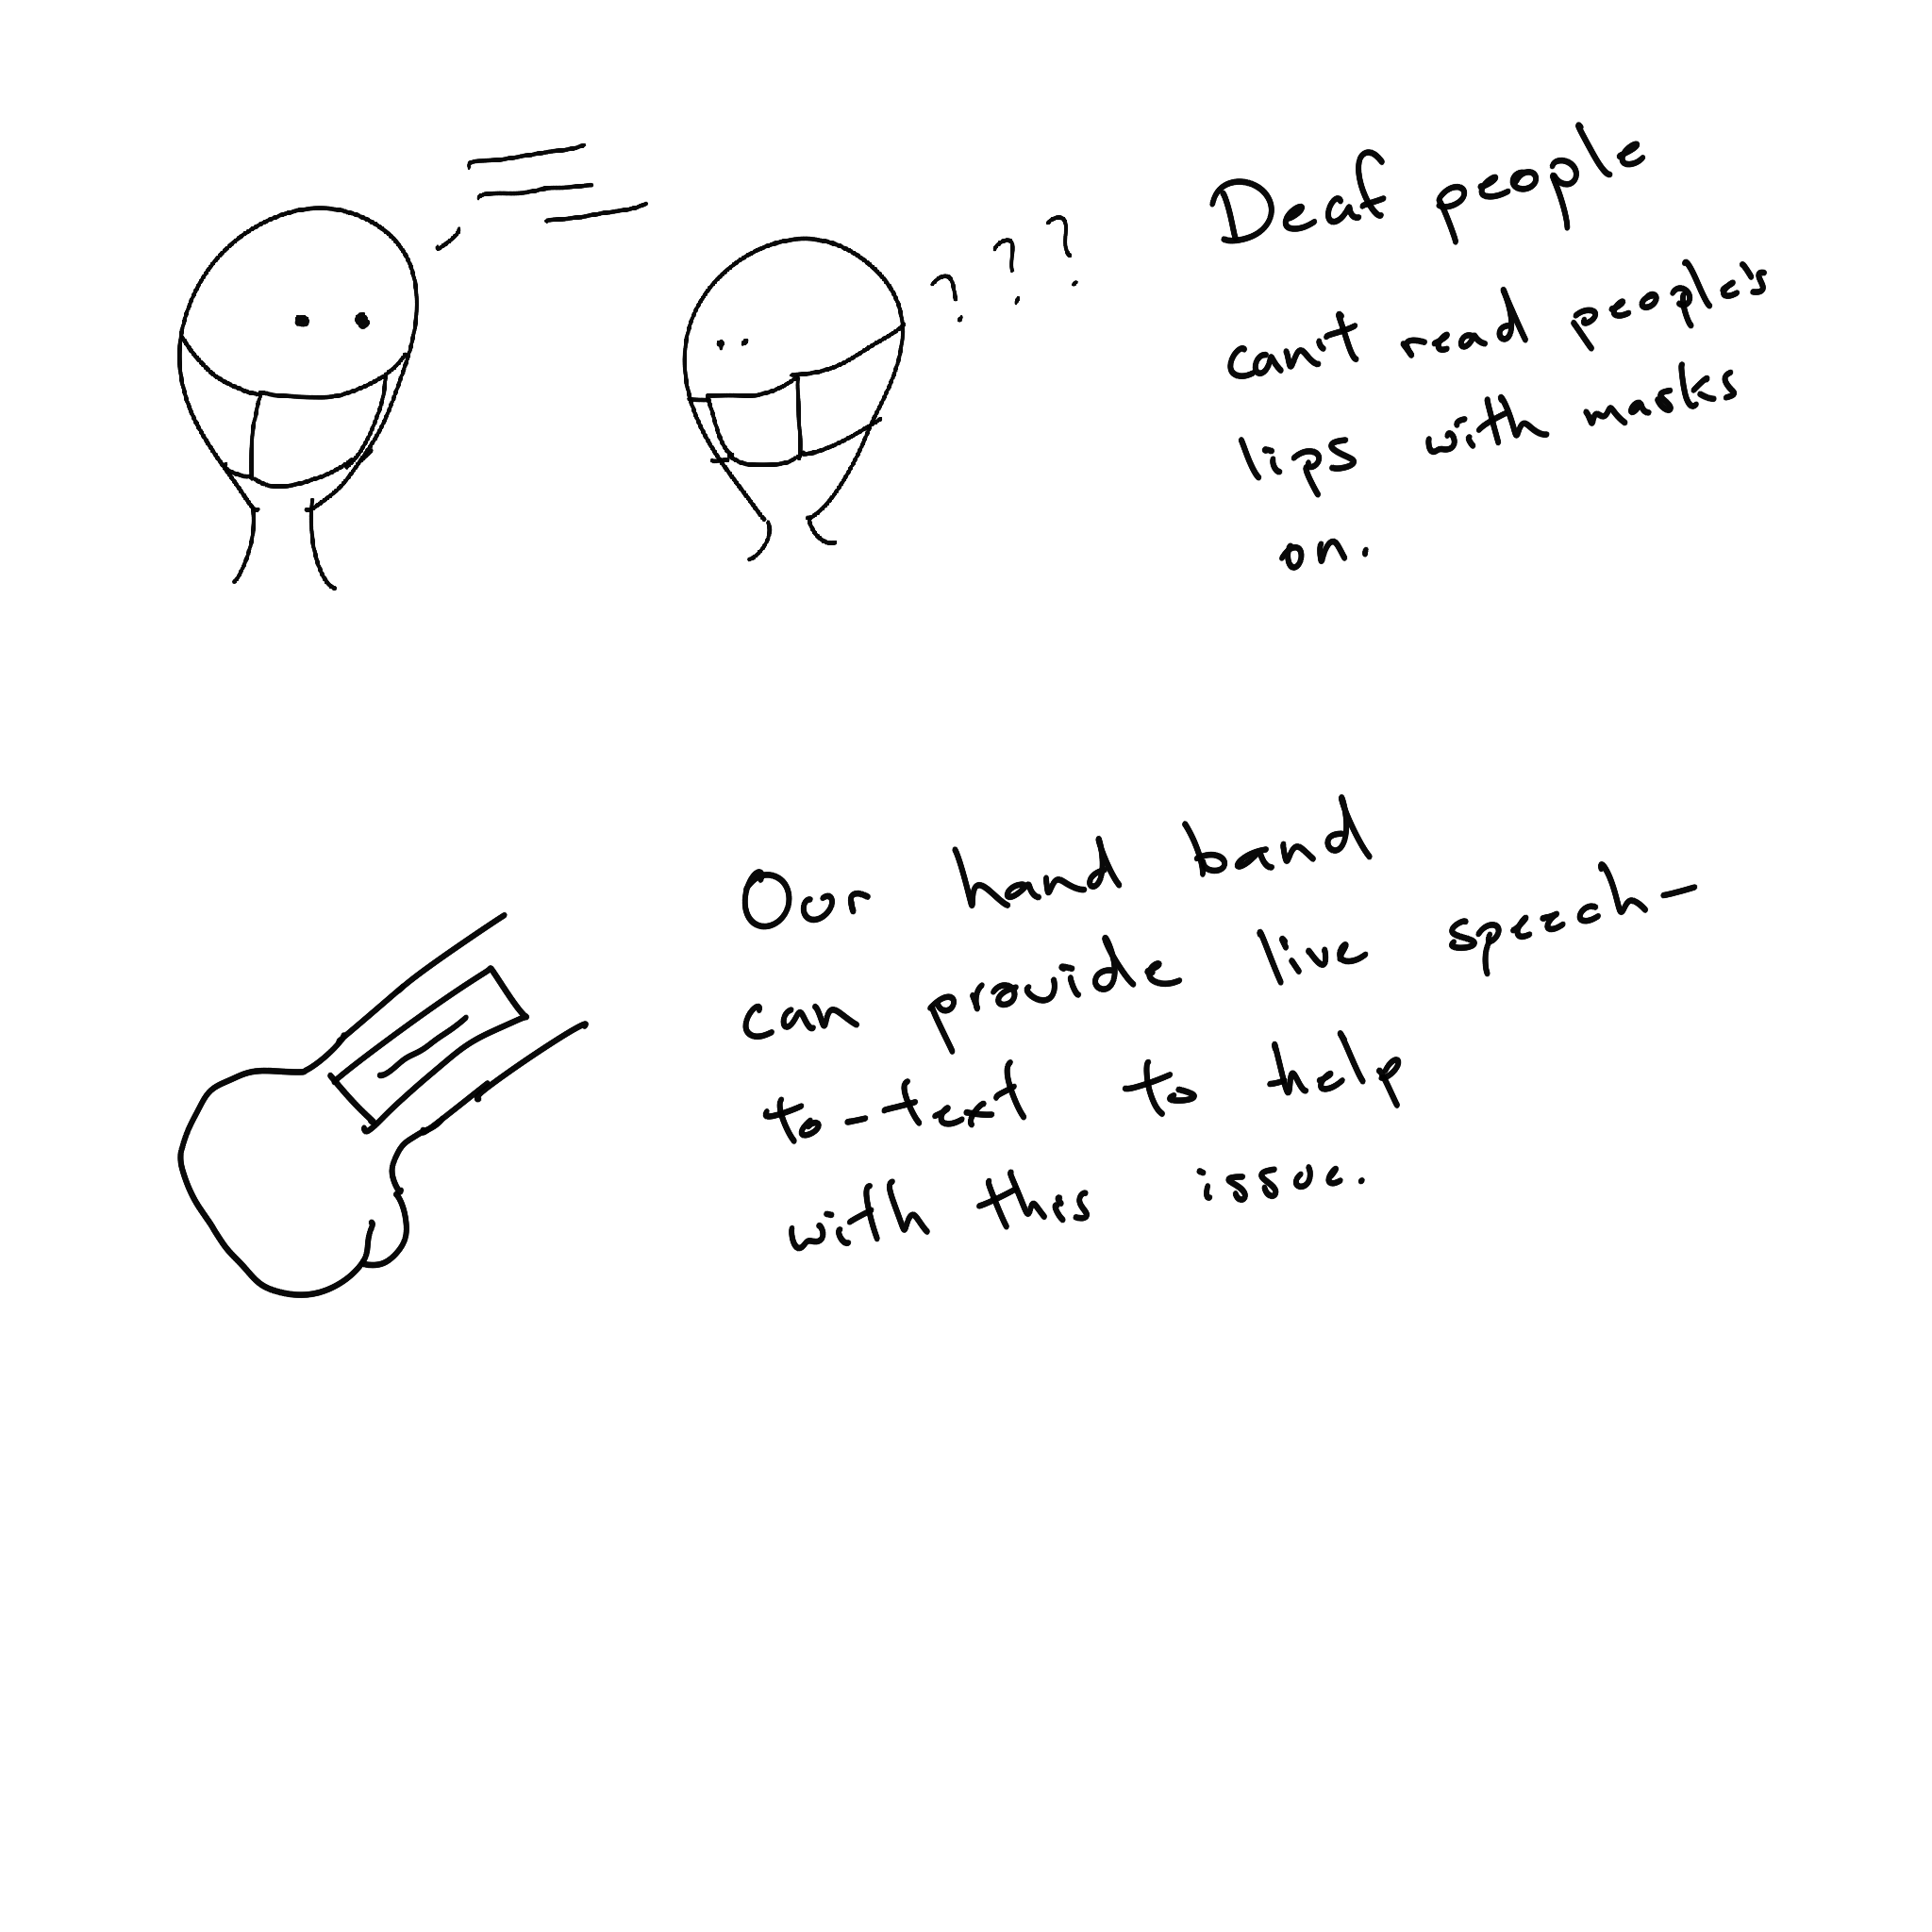 ? ? ?
Deaf people
can't read people's
lips with masks
on.
Our hand band
can provide live speech-
to-text to help
with this issue.